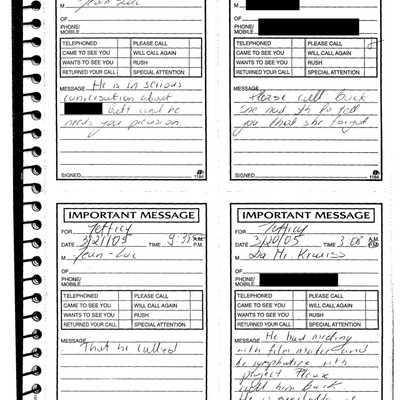 M Jean Luc
OF
PHONE/
MOBILE
TELEPHONED PLEASE CALL
CAME TO SEE YOU WILL CALL AGAIN
WANTS TO SEE YOU RUSH
RETURNED YOUR CALL SPECIAL ATTENTION
MESSAGE He is in serious
about
and he
needs your
SIGNED 1184
M
OF
PHONE/
MOBILE
TELEPHONED PLEASE CALL
CAME TO SEE YOU WILL CALL AGAIN
WANTS TO SEE YOU RUSH
RETURNED YOUR CALL SPECIAL ATTENTION
MESSAGE Please call back
She had to tell
you that she forgot
SIGNED 1184
IMPORTANT MESSAGE
FOR Jeffrey
DATE 3/21/05 TIME A.M.
P.M.
M Jean-Luc
OF
PHONE/
MOBILE
TELEPHONED PLEASE CALL
CAME TO SEE YOU WILL CALL AGAIN
WANTS TO SEE YOU RUSH
RETURNED YOUR CALL SPECIAL ATTENTION
MESSAGE
That he called
IMPORTANT MESSAGE
FOR Jeffrey
DATE 3/20/05 TIME 3:08 A.M.
P.M.
M
OF
PHONE/
MOBILE
TELEPHONED PLEASE CALL
CAME TO SEE YOU WILL CALL AGAIN
WANTS TO SEE YOU RUSH
RETURNED YOUR CALL SPECIAL ATTENTION
MESSAGE He had meeting
with film maker and
he with
project. Please
call him back
He is